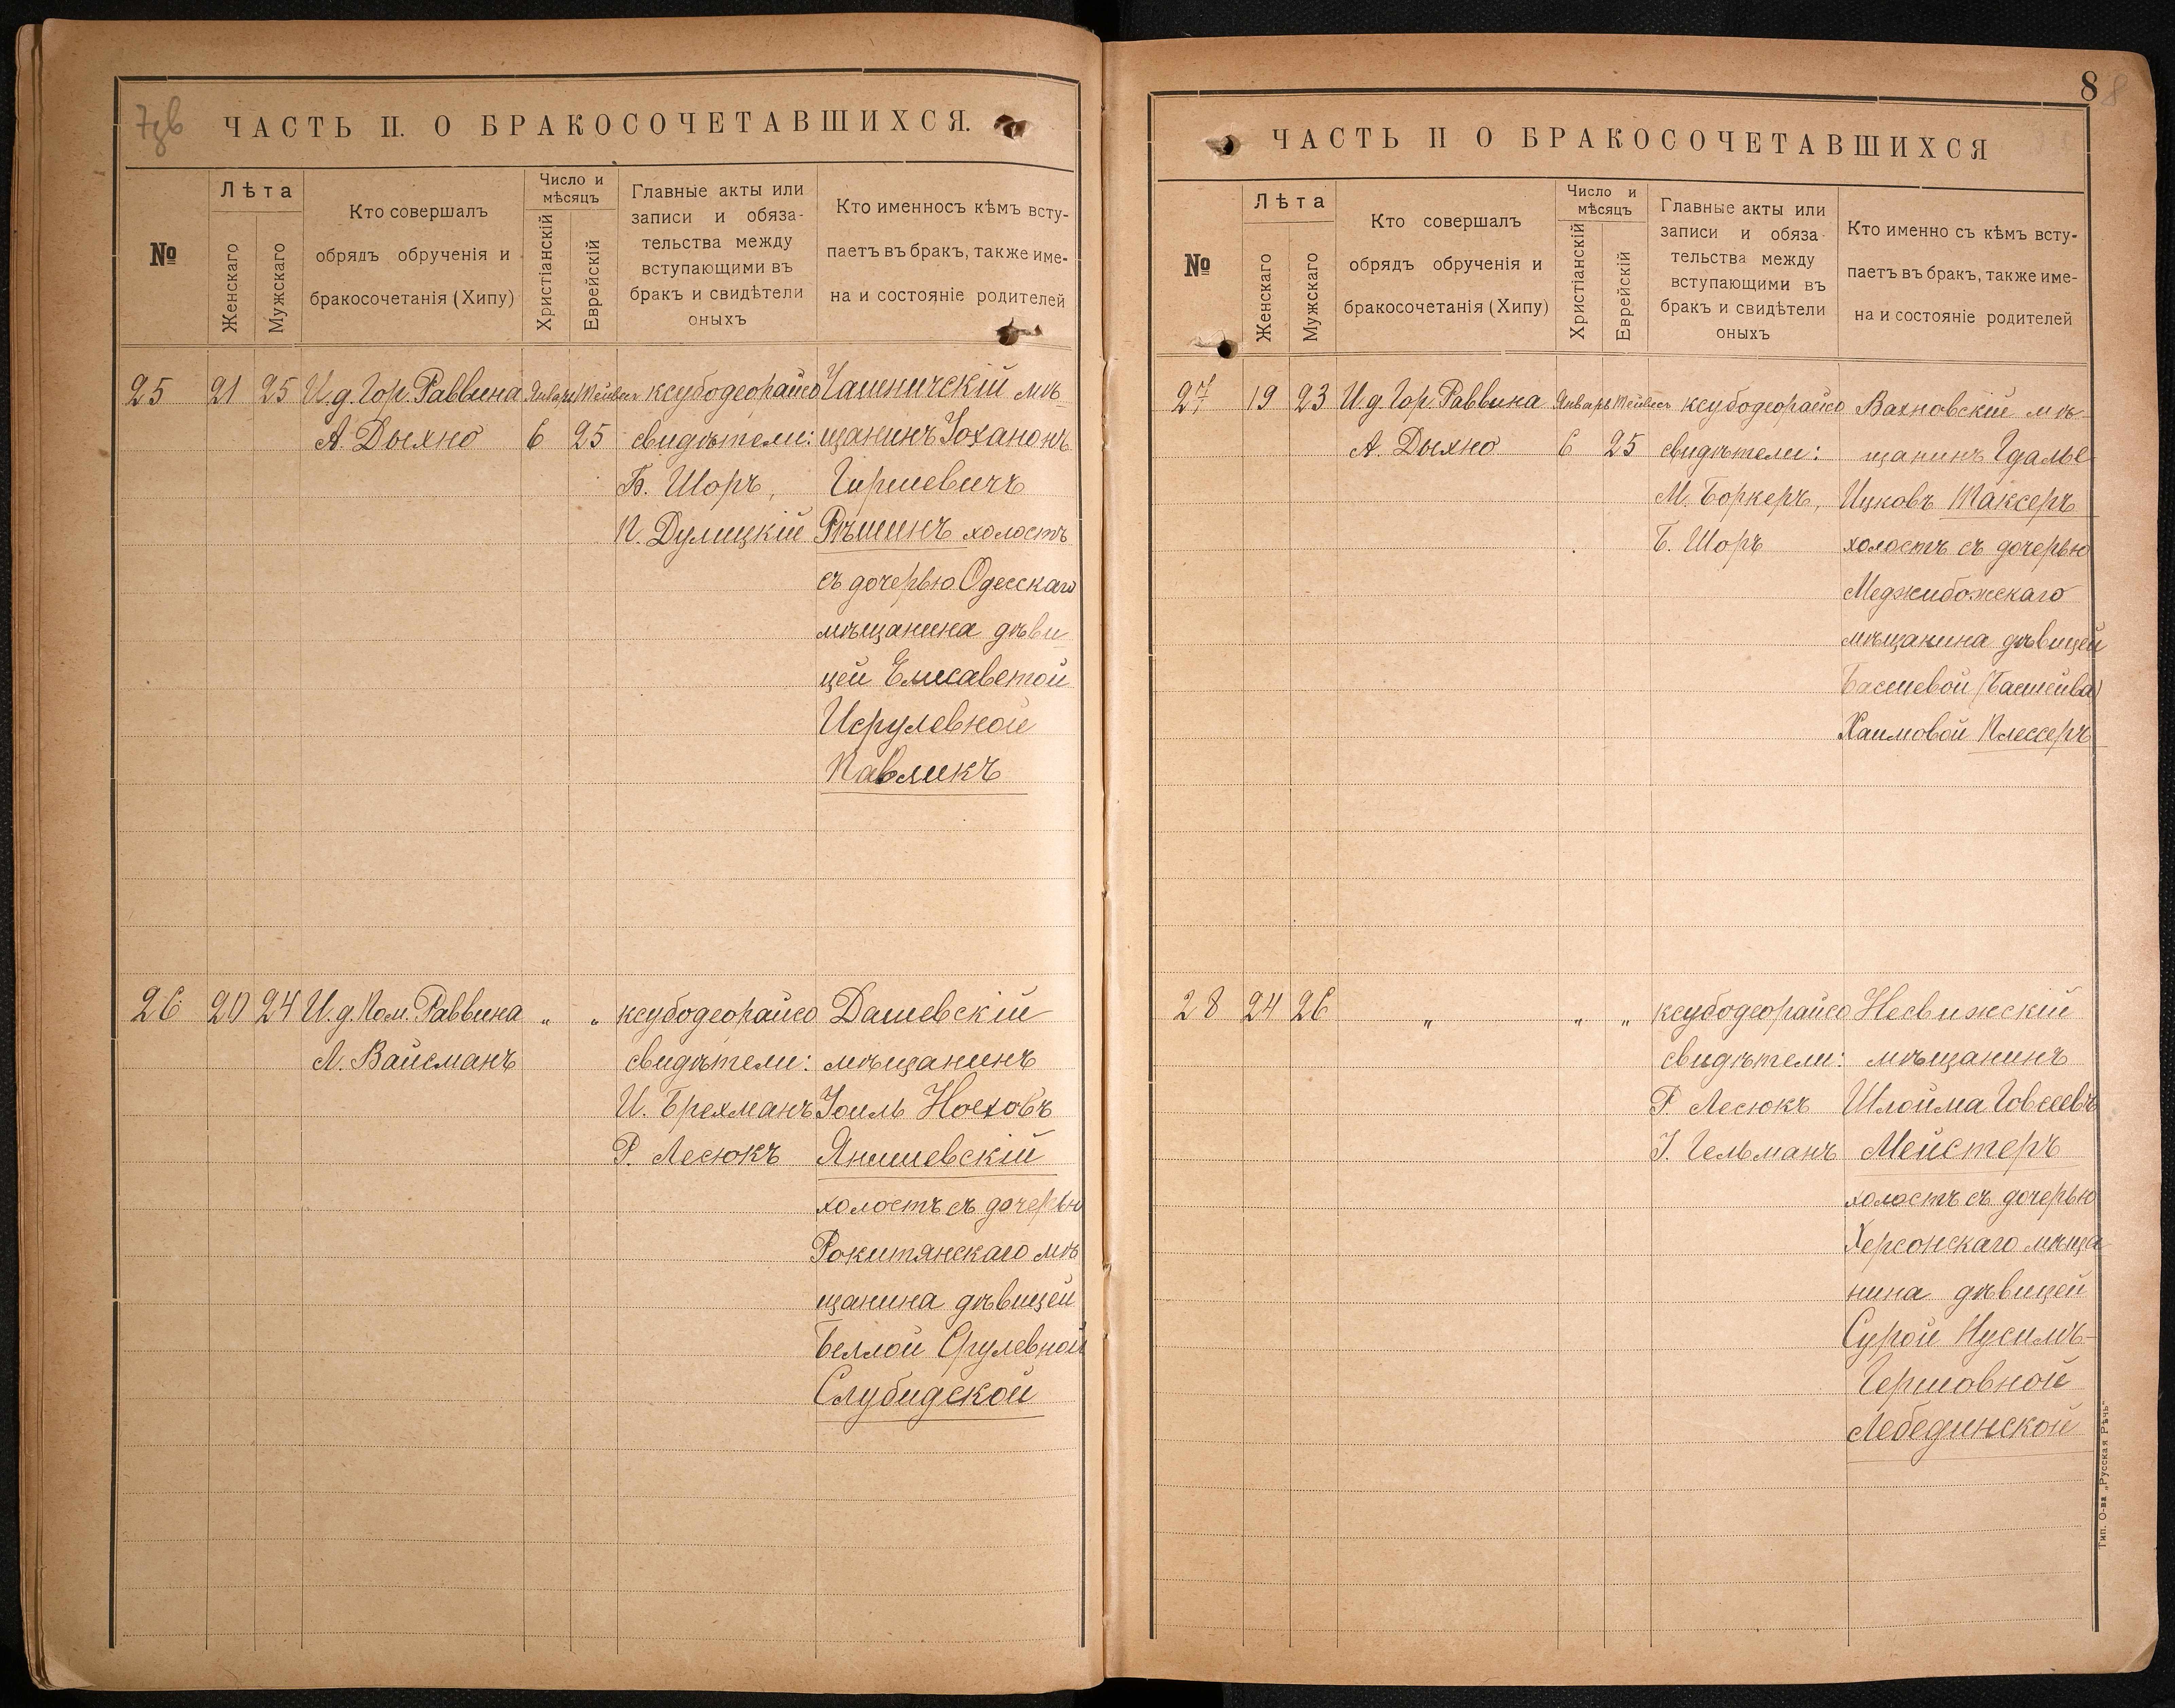 7зв
ЧАСТЬ II. О БРАКОСОЧЕТАВШИХСЯ.
№
Лѣта
Женскаго
Мужскаго
Кто совершалъ
обрядъ обрученія и
бракосочетанія (Хипу)
Число и
мѣсяцъ
Христіанскій
Еврейскій
Главные акты или
записи и обяза-
тельства между
вступающими въ
бракъ и свидѣтели
оныхъ
Кто именносъ кѣмъ всту-
паетъ въ бракъ, также име-
на и состояніе родителей
25 21 25 И.д. Гор. Раввина Январь Тейвесъ ксубодеорайсо Чашничскій мѣ-
А. Дыхно 6 25 свидѣтели: щанинъ Іоханонъ
Б. Шоръ, Гиршевичъ
П. Дулицкій Рѣшинъ холостъ
съ дочерью Одесскаго
мѣщанина дѣви
цей Елисаветой
Исрулевной
Павликъ
26 20 24 И.д. Пом. Раввина „ „ ксубодеорайсо Дашевскій
Л. Вайсманъ свидѣтели: мѣщанинъ
И. Брехманъ Іоиль Ноеховъ
Р. Лесюкъ Янишевскій
холостъ съ дочерью
Рокитянскаго мѣ
щанина дѣвицей
Беллой Срулевной
Слубидской
8 8
ЧАСТЬ II О БРАКОСОЧЕТАВШИХСЯ
№
Лѣта
Женскаго
Мужскаго
Кто совершалъ
обрядъ обрученія и
бракосочетанія (Хипу)
Число и
мѣсяцъ
Христіанскій
Еврейскій
Главные акты или
записи и обяза
тельства между
вступающими въ
бракъ и свидѣтели
оныхъ
Кто именно съ кѣмъ всту-
паетъ въ бракъ, также име-
на и состояніе родителей
27 19 23 И.д. Гор. Раввина Январь Тейвесъ ксубодеорайсо Вахновскій мѣ-
А. Дыхно 6 25 свидѣтели: щанинъ Гдалье
М. Боркеръ, Ицковъ Таксеръ
Б. Шоръ холостъ съ дочерью
Меджибожскаго
мѣщанина дѣвицей
Басшевой (Башейва)
Хаимовой Плессеръ
28 24 26 „ „ „ ксубодеорайсо Несвижскій
свидѣтели: мѣщанинъ
Р. Лесюкъ Шлойма Говсеевъ
І. Гельманъ Мейстеръ
холостъ съ дочерью
Херсонскаго мѣща
нина дѣвицей
Сурой Нусимъ-
Гершовной
Лебединской
Тип. О-ва „Русская Рѣчь“